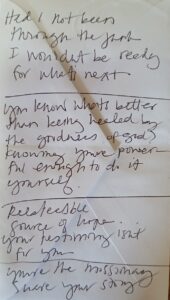 Had I not been
through the junk
I wouldn't be ready
for what's next
You know what's better
than being healed by
the goodness of god?
Knowing you're power
ful enough to do it
yourself.
Relateable
source of hope...
your testimony isn't
for you
You're the missionary
share your story